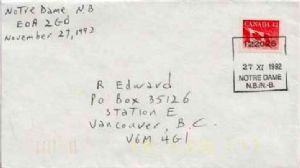 Notre Dame N B
E0A 2G0
November 27, 1992
CANADA 42
122025
27 XI 1992
NOTRE DAME
N.B./N.-B.
R Edward
PO Box 35126
Station E
Vancouver, B.C.
V6M 4G1